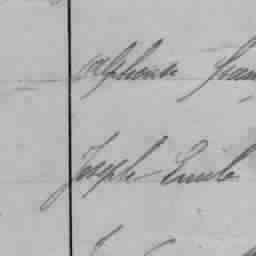 Alphonse
Joseph Emile